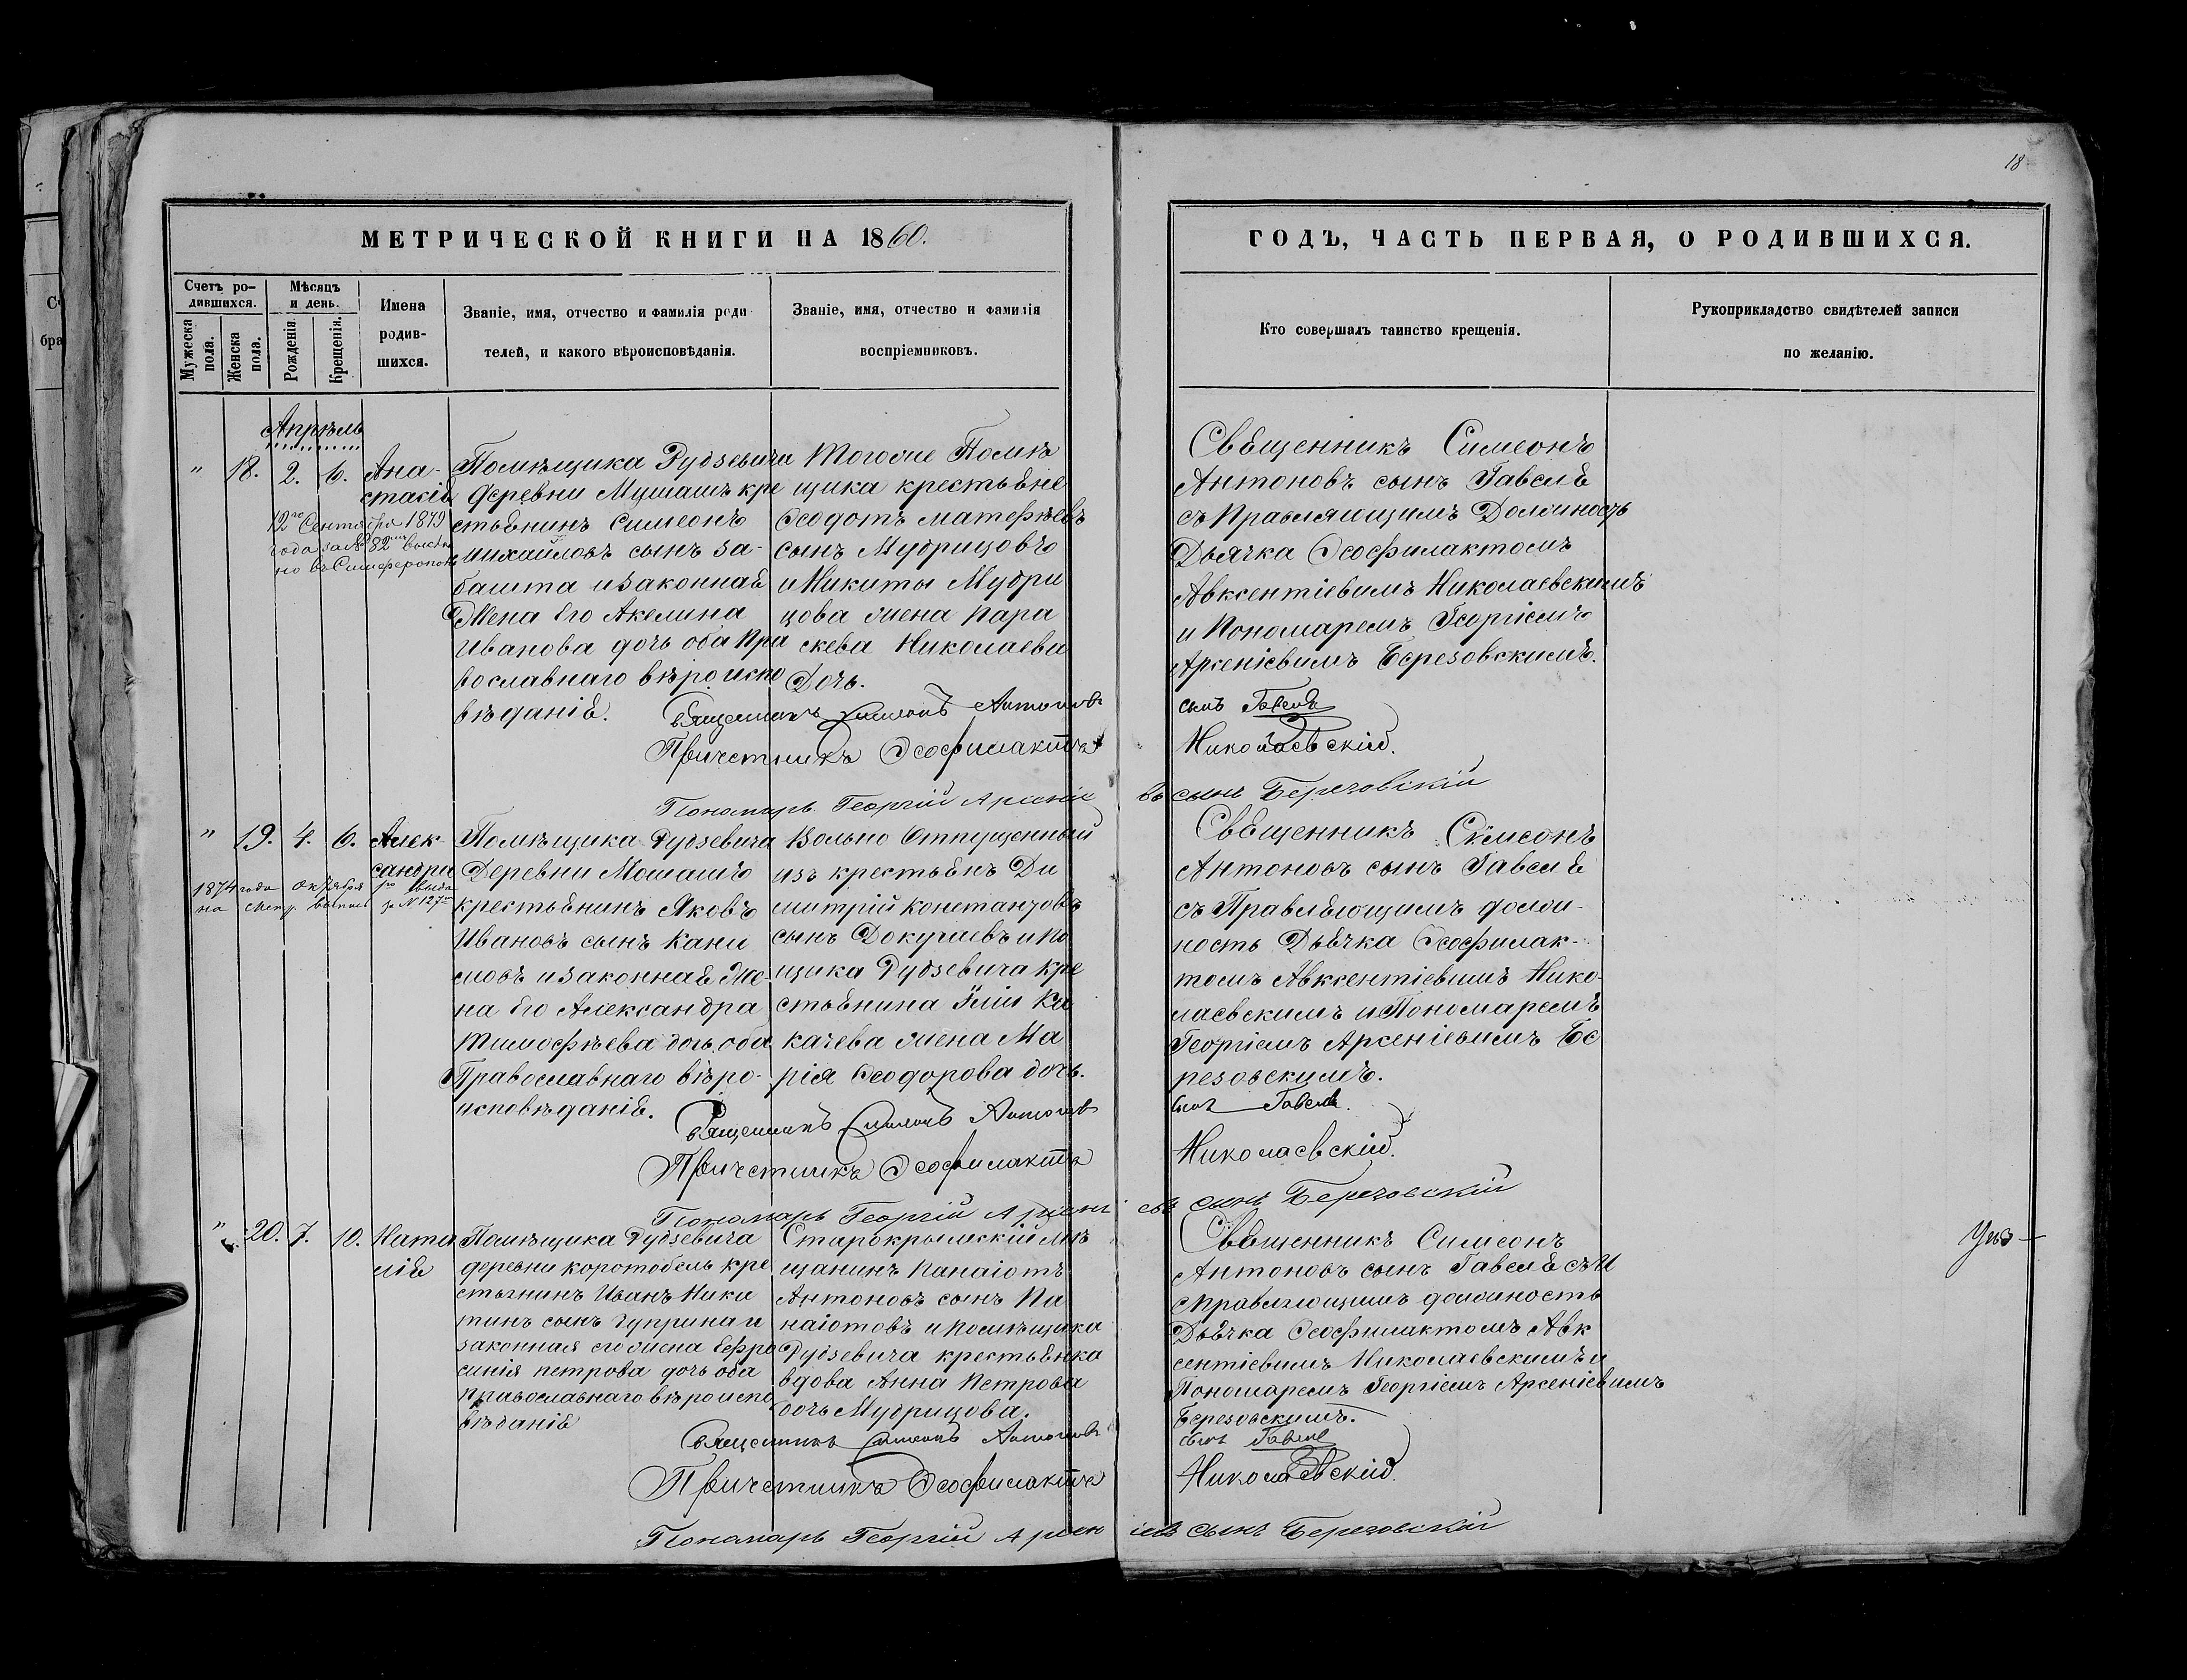 18
МЕТРИЧЕСКОЙ КНИГИ НА 1860.
ГОДЪ, ЧАСТЬ ПЕРВАЯ, О РОДИВШИХСЯ.
Счетъ ро-
дившихся.
Мужеска пола.
Женска пола.
Мѣсяцъ
и день.
Рожденія
Крещенія.
Имена
родив-
шихся.
Званіе, имя, отчество и фамилія роди
телей, и какого вѣроисповѣданія.
Званіе, имя, отчество и фамилія
воспріемниковъ.
Кто совершалъ таинство крещенія.
Рукоприкладство свидѣтелей записи
по желанію.
Апрѣль
" 18. 2. 6. Ана-
стасія
12го Сентября 1879
года за № 82
но въ Симферополь
Помѣщика Рудзевича
деревни Мушашъ кре
стьянинъ Симеонъ
Михайловъ сынъ За-
башта и законная
Жена Его Акелина
Иванова дочь оба Пра
вославнаго вѣроиспо
вѣданія.
Тогоже Помѣ
щика крестьяне
Ѳеодотъ Матфѣевъ
сынъ Мудрицовъ
и Никиты Мудри
цова жена Пара
скева Николаева
Дочь.
Священникъ Симеонъ
Антоновъ сынъ Гавеля
съ Правляющимъ Должность
Дьячка Ѳеофилактомъ
Авксентіевимъ Николаевскимъ
и Пономаремъ Георгіемъ
Арсеніевимъ Березовскимъ.
Священникъ Симеонъ Антоновъ сынъ Гавеля
Причетникъ Ѳеофилактъ Николаевскій.
Пономарь Георгій Арсеніевъ сынъ Березовскій
" 19. 4. 6. Алек-
сандра
1874 года октября 1го выда
на метр. выпись за № 127
Помѣщика Рудзевича
Деревни Мошашъ
крестьянинъ Яковъ
Ивановъ сынъ Кани
мовъ и законная Же
на Его Александра
Тимофѣева дочь оба
Православнаго вѣро-
исповѣданія.
Вольно Отпущенный
изъ крестьянъ Ди
митрій Константовъ
сынъ Докучаевъ и по
щика Рудзевича кре
стьянина Іліи Ка
качева жена Ма
рія Ѳеодорова дочь.
Священникъ Симеонъ
Антоновъ сынъ Гавеля
съ Правляющимъ долж-
ность Дьячка Ѳеофилак-
томъ Авксентіевимъ Нико-
лаевскимъ и Пономаремъ
Георгіемъ Арсеніевимъ Бе
резовскимъ.
Священникъ Симеонъ Антоновъ сынъ Гавеля.
Причетникъ Ѳеофилактъ Николаевскій.
Пономарь Георгій Арсеніевъ сынъ Березовскій
" 20. 7. 10. Ната
лія
Помѣщика Рудзевича
деревни коротобель кре
стьянинъ Иванъ Ники
тинъ сынъ Чуприна и
законная его жена Ефро
синія петрова дочь оба
православнаго вѣроиспо
вѣданія
Старокрымскій мѣ
щанинъ Панаіотъ
Антоновъ сынъ Па
наіотовъ и помѣщика
Рудзевича крестьянка
вдова Анна Петрова
дочь Мудрицова.
Священникъ Симеонъ
Антоновъ сынъ Гавеля съ И
справляющимъ должность
Дьячка Ѳеофилактомъ Авк
сентіевимъ Николаевскимъ и
Пономаремъ Георгіемъ Арсеніевимъ
Березовскимъ.
Священникъ Симеонъ Антоновъ сынъ Гавеля
Причетникъ Ѳеофилактъ Николаевскій.
Пономарь Георгій Арсеніевъ сынъ Березовскій